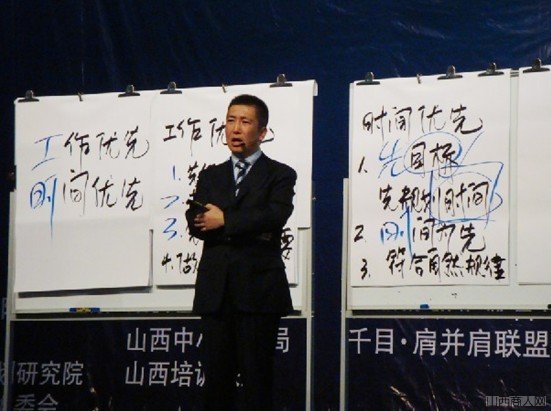 工作优先
时间优先
工作优先
1.
2.
3.
4.做
时间优先
1. 先目标
先规划时间
2. 时间为先
3. 符合自然规律
山西中小
局
划研究院
山西培训
委会
千目·肩并肩联盟
山西商人网